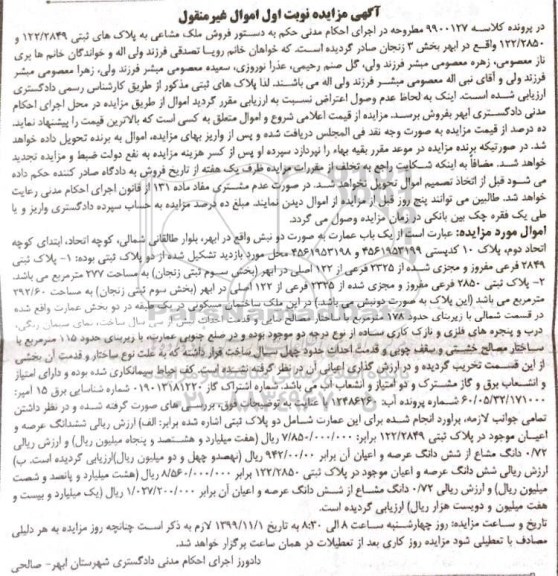 آگهی مزایده نوبت اول اموال غیرمنقول
در پرونده کلاسه ۹۹۰۰۱۲۷ مطروحه در اجرای احکام مدنی حکم به دستور فروش ملک مشاعی به پلاک های ثبتی ۱۲۲/۲۸۴۹ و
۱۲۲/۲۸۵۰ واقع در ابهر بخش ۳ زنجان صادر گردیده است. که خواهان خانم رویا تصدقی فرزند ولی اله و خواندگان خانم ها پری
ناز معصومی، زهره معصومی مبشر فرزند ولی، گل صنم رحیمی، عذرا نوروزی، سعیده معصومی مبشر فرزند ولی، زهرا معصومی مبشر
فرزند ولی و آقای نبی اله معصومی مبشر فرزند ولی اله می باشند. لذا پلاک های ثبتی مذکور از طریق کارشناس رسمی دادگستری
ارزیابی شده است. اینک به لحاظ عدم وصول اعتراض نسبت به ارزیابی مقرر گردید اموال از طریق مزایده در محل اجرای احکام
مدنی دادگستری ابهر بفروش برسد. مزایده از قیمت اعلامی شروع و اموال متعلق به کسی است که بالاترین قیمت را پیشنهاد نماید.
ده درصد از قیمت مزایده به صورت وجه نقد فی المجلس دریافت شده و پس از واریز بهای مزایده، اموال به برنده تحویل داده خواهد
شد. در صورتیکه برنده مزایده در موعد مقرر بقیه بهاء را نپردازد سپرده او پس از کسر هزینه مزایده به نفع دولت ضبط و مزایده تجدید
خواهد شد. مضافاً به اینکه شکایت راجع به تخلف از مقررات مزایده ظرف یک هفته از تاریخ فروش به دادگاه صادر کننده حکم داده
می شود قبل از اتخاذ تصمیم اموال تحویل نخواهد شد. در صورت عدم مشتری مفاد ماده ۱۳۱ از قانون اجرای احکام مدنی رعایت
خواهد شد. طالبین می توانند پنج روز قبل از مزایده از اموال دیدن نمایند. مبلغ ده درصد مزایده به حساب سپرده دادگستری واریز و یا
طی یک فقره چک بین بانکی در زمان مزایده وصول می گردد.
اموال مورد مزایده: عبارت است از یک باب عمارت به صورت دو نبش واقع در ابهر، بلوار طالقانی شمالی، کوچه اتحاد، ابتدای کوچه
اتحاد دوم، پلاک ۱۰ کدپستی ۴۵۶۱۹۵۳۱۹۹ و ۴۵۶۱۹۵۳۱۹۸ محل مورد بازدید تشکیل شده از دو پلاک ثبتی بوده: ۱- پلاک ثبتی
۲۸۴۹ فرعی مفروز و مجزی شده از ۲۳۲۵ فرعی از ۱۲۲ اصلی در ابهر (بخش سوم ثبتی زنجان) به مساحت ۲۷۷ مترمربع می باشد.
۲- پلاک ثبتی ۲۸۵۰ فرعی مفروز و مجزی شده از ۲۳۲۵ فرعی از ۱۲۲ اصلی در ابهر (بخش سوم ثبتی زنجان) به مساحت ۲۹۲/۶۰
مترمربع می باشد (این پلاک به صورت دونبش می باشد) در این ملک ساختمان مسکونی در یک طبقه در دو بخش عمارت واقع شده
در قسمت شمالی با زیربنای حدود ۱۷۸ مترمربع با ساختار مصالح بنایی و قدمت احداث بیش از سی سال ساخت، نمای سیمان رنگی،
درب و پنجره های فلزی و نازک کاری ساده از نوع درجه دو موجود بوده و در ضلع جنوبی عمارت، با زیربنای حدود ۱۱۵ مترمربع با
ساختار مصالح خشتی و سقف چوبی و قدمت احداث حدود چهل سال ساخت قرار داشته که به علت نوع ساختار و قدمت آن بخشی
از این قسمت تخریب گردیده و در ارزش گذاری اعیانی آن در نظر گرفته نشده است. کف حیاط سیمانکاری شده بوده و دارای امتیاز
و انشعاب برق و گاز مشترک و دو امتیاز و انشعاب آب می باشد. شماره اشتراک گاز ۰۱۹۰۱۳۱۸۱۲۲۰ شماره شناسایی برق ۱۵ آمپر:
۶۰/۰۵/۳۲/۱۷۱۰۰۰ شماره پرونده آب: ۱۱۲۴۸۶۲۶۰ با عنایت به توضیحات فوق، بررسی های صورت گرفته شده و در نظر داشتن
تمامی جوانب لازمه، برآورد انجام شده برای این عمارت شامل دو پلاک ثبتی اشاره شده برابر: الف) ارزش ریالی ششدانگ عرصه و
اعیان موجود در پلاک ثبتی ۱۲۲/۲۸۴۹ برابر: ۷/۸۵۰/۰۰۰/۰۰۰ ریال (هفت میلیارد و هشتصد و پنجاه میلیون ریال) و ارزش ریالی
۰/۷۲ دانگ مشاع از شش دانگ عرصه و اعیان آن برابر ۹۴۲/۰۰/۰۰ ریال (نهصدو چهل و دو میلیون ریال)ارزیابی گردیده است. ب)
ارزش ریالی شش دانگ عرصه و اعیان موجود در پلاک ثبتی ۱۲۲/۲۸۵۰ برابر ۸/۵۶۰/۰۰۰/۰۰۰ ریال (هشت میلیارد و پانصد و شصت
میلیون ریال) و ارزش ریالی ۰/۷۲ دانگ مشاع از شش دانگ عرصه و اعیان آن برابر ۱/۰۲۷/۲۰۰/۰۰۰ ریال (یک میلیارد و بیست و
هفت میلیون و دویست هزار ریال) ارزیابی گردیده است.
تاریخ و ساعت مزایده: روز چهارشنبه ساعت ۸ الی ۸:۳۰ به تاریخ ۱۳۹۹/۱۱/۱ لازم به ذکر است چنانچه روز مزایده به هر دلیلی
مصادف با تعطیلی شود مزایده روز کاری بعد از تعطیلات در همان ساعت برگزار خواهد شد.
دادورز اجرای احکام مدنی دادگستری شهرستان ابهر- صالحی